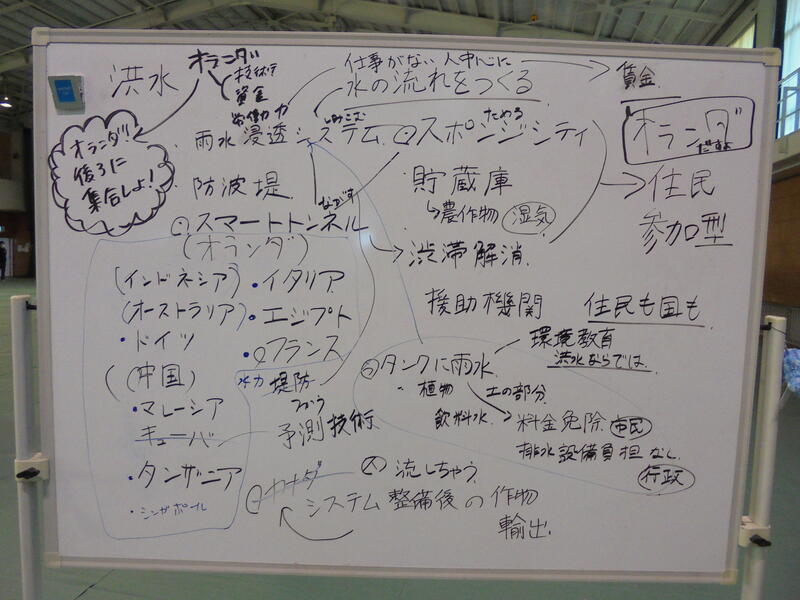 洪水
オランダ
技術
資金
労働力
仕事がない人中心に
水の流れをつくる
賃金
オランダ!!
後ろに
集合しよ!
雨水浸透システム
しみこむ
スポンジシティ
ためる
オランダ
だすよ
防波堤
貯蔵庫
農作物 湿気
住民
参加型
スマートトンネル
ながす
(オランダ)
渋滞解消
(インドネシア)
・イタリア
(オーストラリア)
・エジプト
援助機関
住民も国も
・ドイツ
フランス
タンクに雨水
環境教育
洪水ならでは
(中国)
水力 堤防
・植物
土の部分
・マレーシア
つかう
飲料水
料金免除 市民
キューバ
予測技術
排水設備負担なし
行政
・タンザニア
カナダ
流しちゃう
・シンガポール
システム整備後の作物
輸出